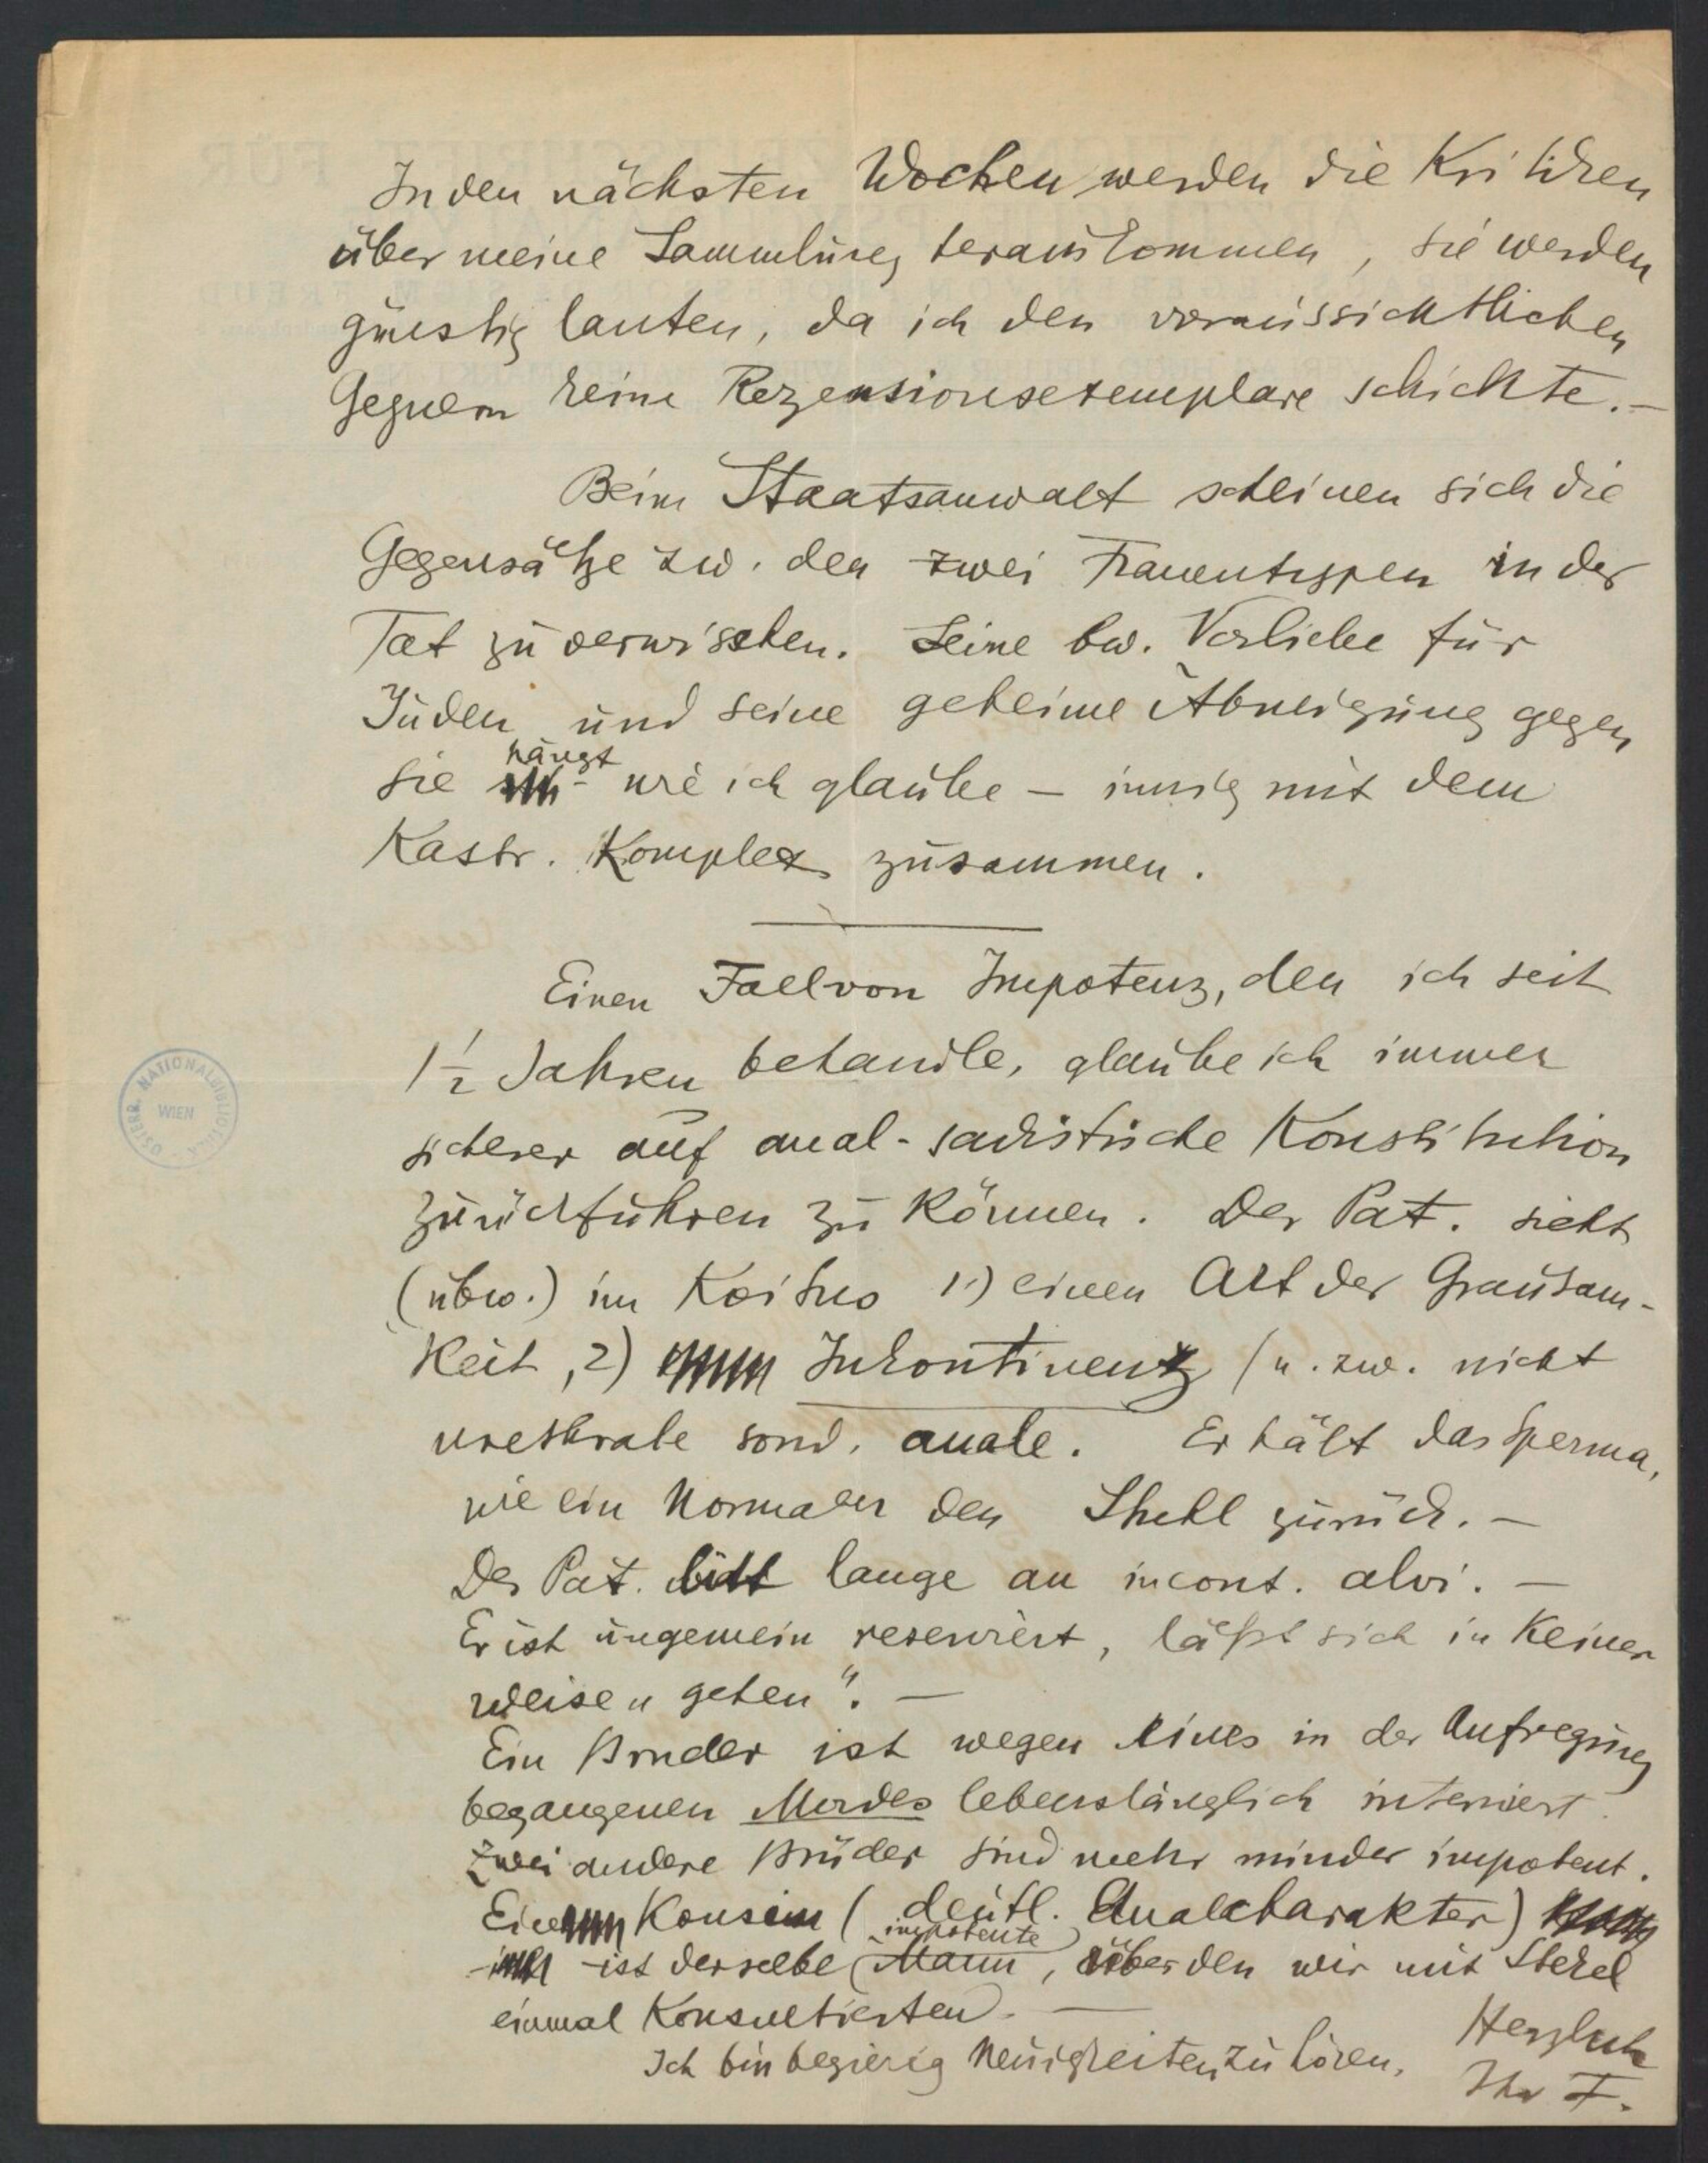 In den nächsten Wochen werden die Kritiken
über meine Sammlung herauskommen, sie werden
günstig lauten, da ich den voraussichtlichen
Gegnern keine Rezensionsexemplare schickte. –
Beim Staatsanwalt scheinen sich die
Gegensätze zw. den zwei Frauentypen in der
Tat zu verwischen. Seine bw. Vorliebe für
Juden und seine geheime Abneigung gegen
sie hängt – wie ich glaube – innig mit dem
Kastr. Komplex zusammen.
Einen Fall von Impotenz, den ich seit
1½ Jahren behandle, glaube ich immer
sicherer auf anal-sadistische Konstitution
zurückführen zu können. Der Pat. sieht
(ubw.) im Koitus 1.) einen Akt der Grausam-
keit, 2) Inkontinenz (u. zw. nicht
urethrale sond. anale. Er hält das Sperma,
wie ein Normaler den Stuhl zurück. –
Der Pat. litt lange an incont. alvi. –
Er ist ungemein reserviert, läßt sich in keiner
Weise „gehen“. –
Ein Bruder ist wegen eines in der Aufregung
begangenen Mordes lebenslänglich interniert.
Zwei andere Brüder sind mehr minder impotent.
Ein Kousin (deutl. Analcharakter)
ist derselbe impotente Mann, über den wir mit Stekel
einmal konsultierten. –
Ich bin begierig Neuigkeiten zu hören.
Herzlich
Ihr F.
ÖSTERR. NATIONALBIBLIOTHEK
WIEN